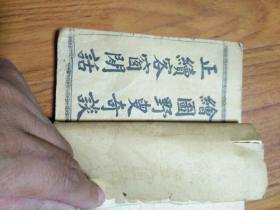 正續客窗閒話
繪圖野叟奇談